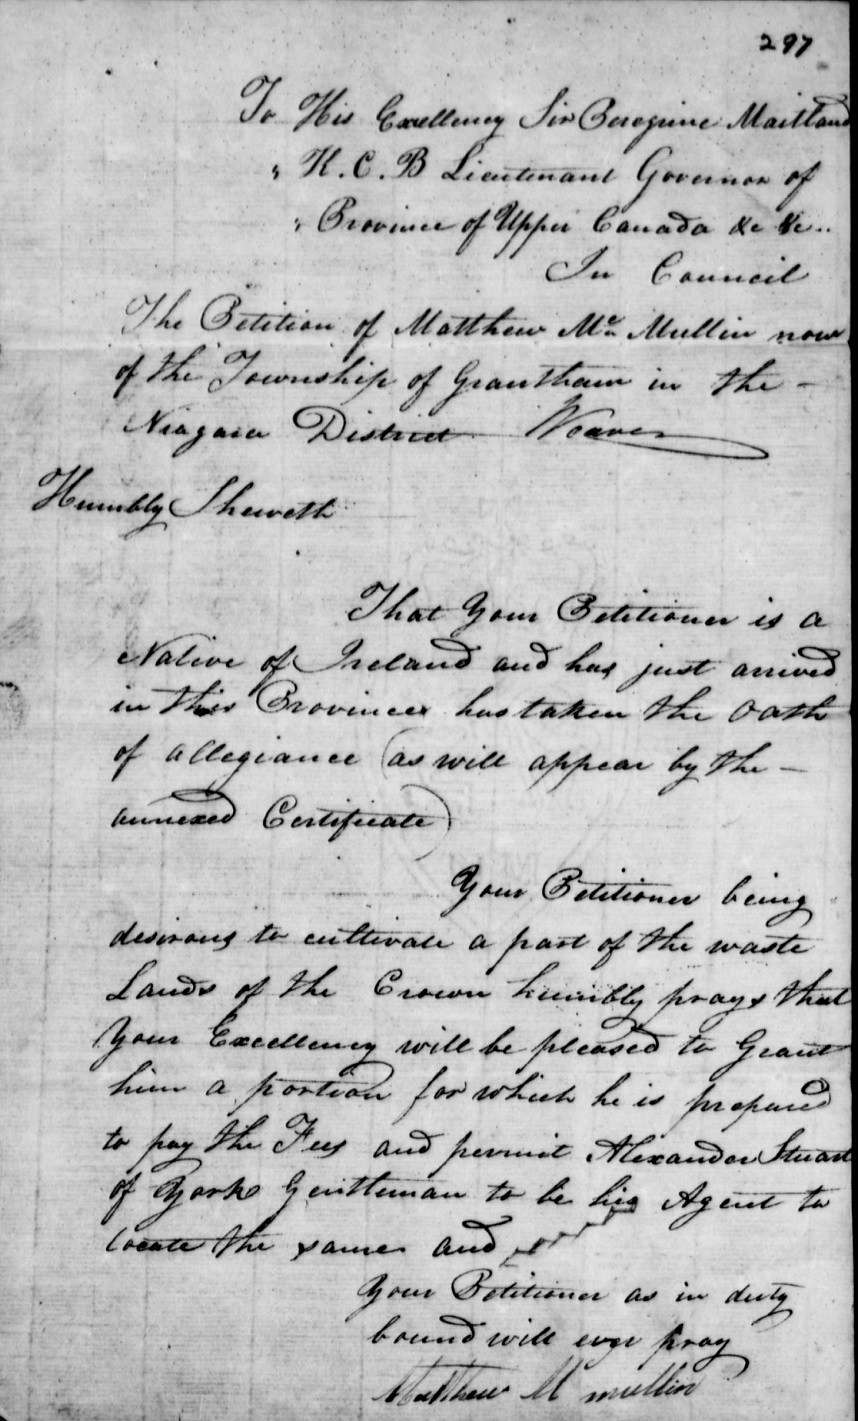 297
To His Exellency Sir Peregrine Maitland
" K. C. B Lieutenant Governor of
" Province of Upper Canada &c &c..
In Council
The Petition of Matthew Mc Mullin now
of the Township of Grantham in the -
Niagara District Weaver
Humbly Sheweth
That Your Petitioner is a
Native of Ireland and has just arrived
in this Province has taken the Oath
of allegiance (as will appear by the -
annexed Certificate)
Your Petitioner being
desirous to cultivate a part of the waste
Lands of the Crown humbly prays that
Your Excellency will be pleased to Grant
him a portion for which he is prepared
to pay the Fees and permit Alexander Stuart
of York Gentleman to be his Agent to
locate the same and
Your Petitioner as in duty
bound will ever pray
Matthew M mullin